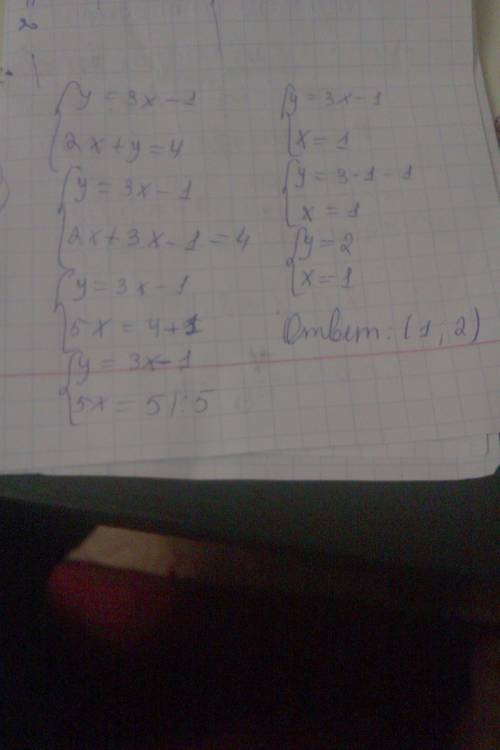 { y = 3x - 1
{ 2x + y = 4
{ y = 3x - 1
{ 2x + 3x - 1 = 4
{ y = 3x - 1
{ 5x = 4 + 1
{ y = 3x - 1
{ 5x = 5 | : 5
{ y = 3x - 1
{ x = 1
{ y = 3 - 1 - 1
{ x = 1
{ y = 2
{ x = 1
Ответ: (1; 2)